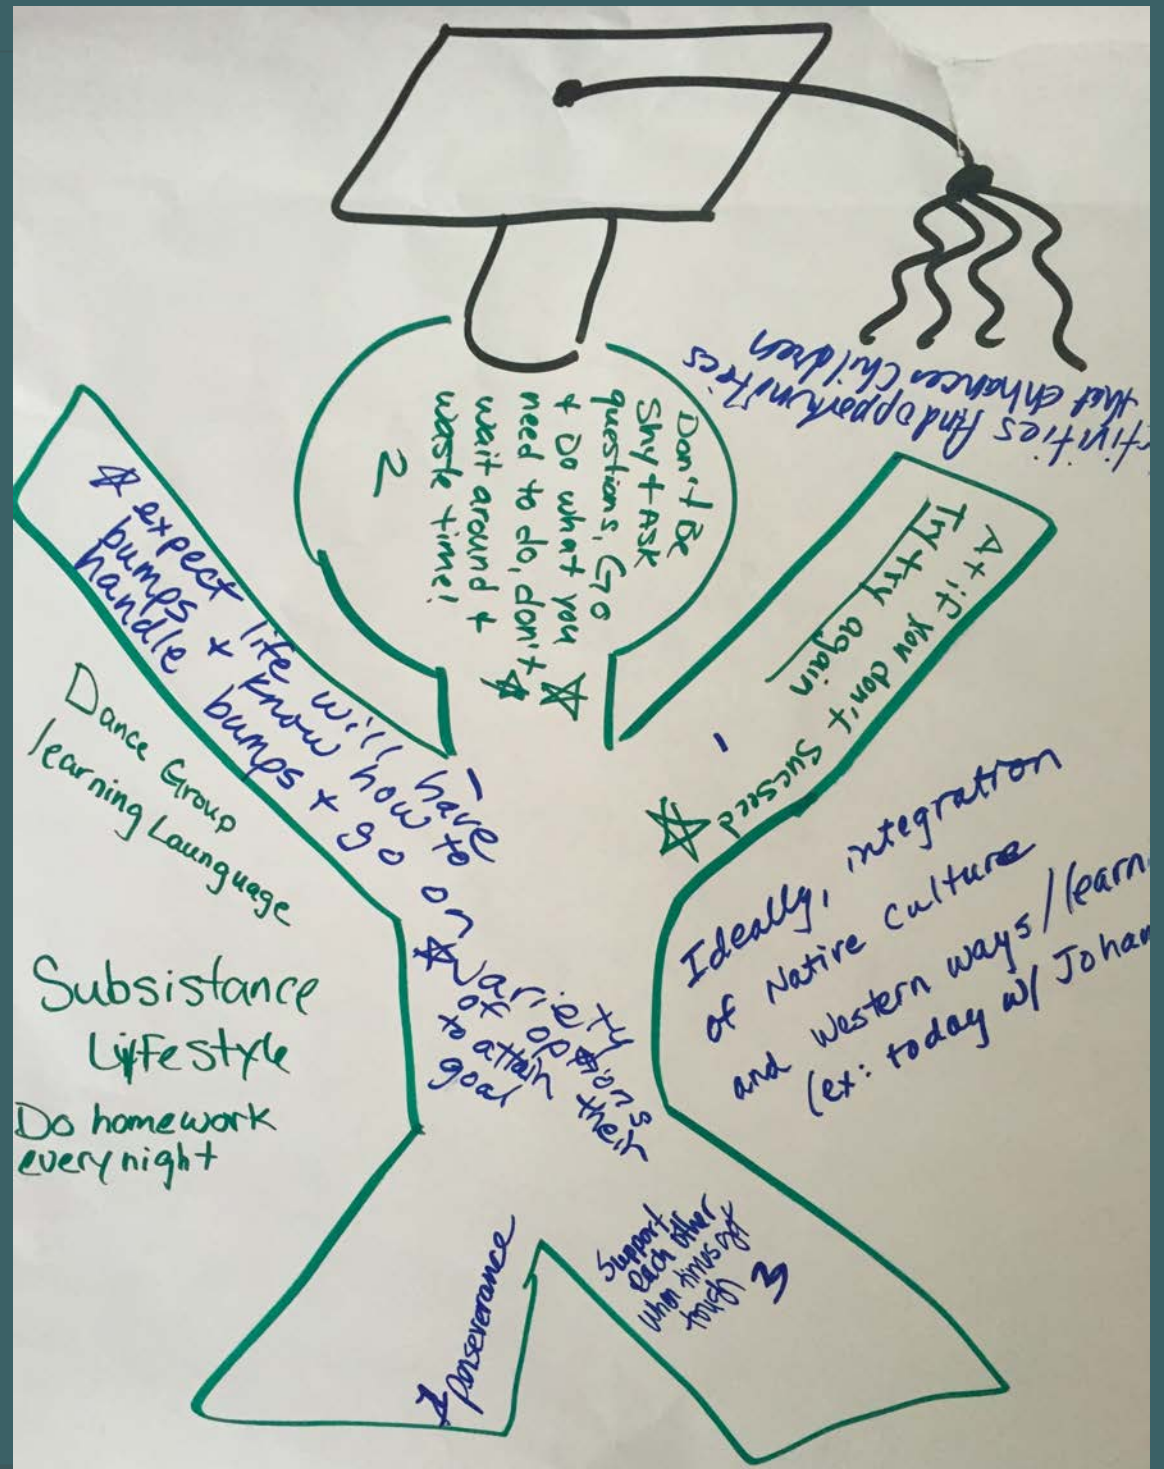 tivities And opportunities
that enhances children
Don't Be
Shy + Ask
questions, Go
+ Do what you
need to do, don't
wait around +
waste time!
2
A + if you don't sucseed
Try + try again
expect life will have
bumps + know how to
handle bumps + go on
1
Dance Group
learning Launguage
Subsistance
Lifestyle
Do homework
every night
Variety
of options
to attain their
goal
Ideally, integration
of Native culture
and western ways/learn
(ex: today w/ Johan
perseverance
Support
each other
when times get
tough
3